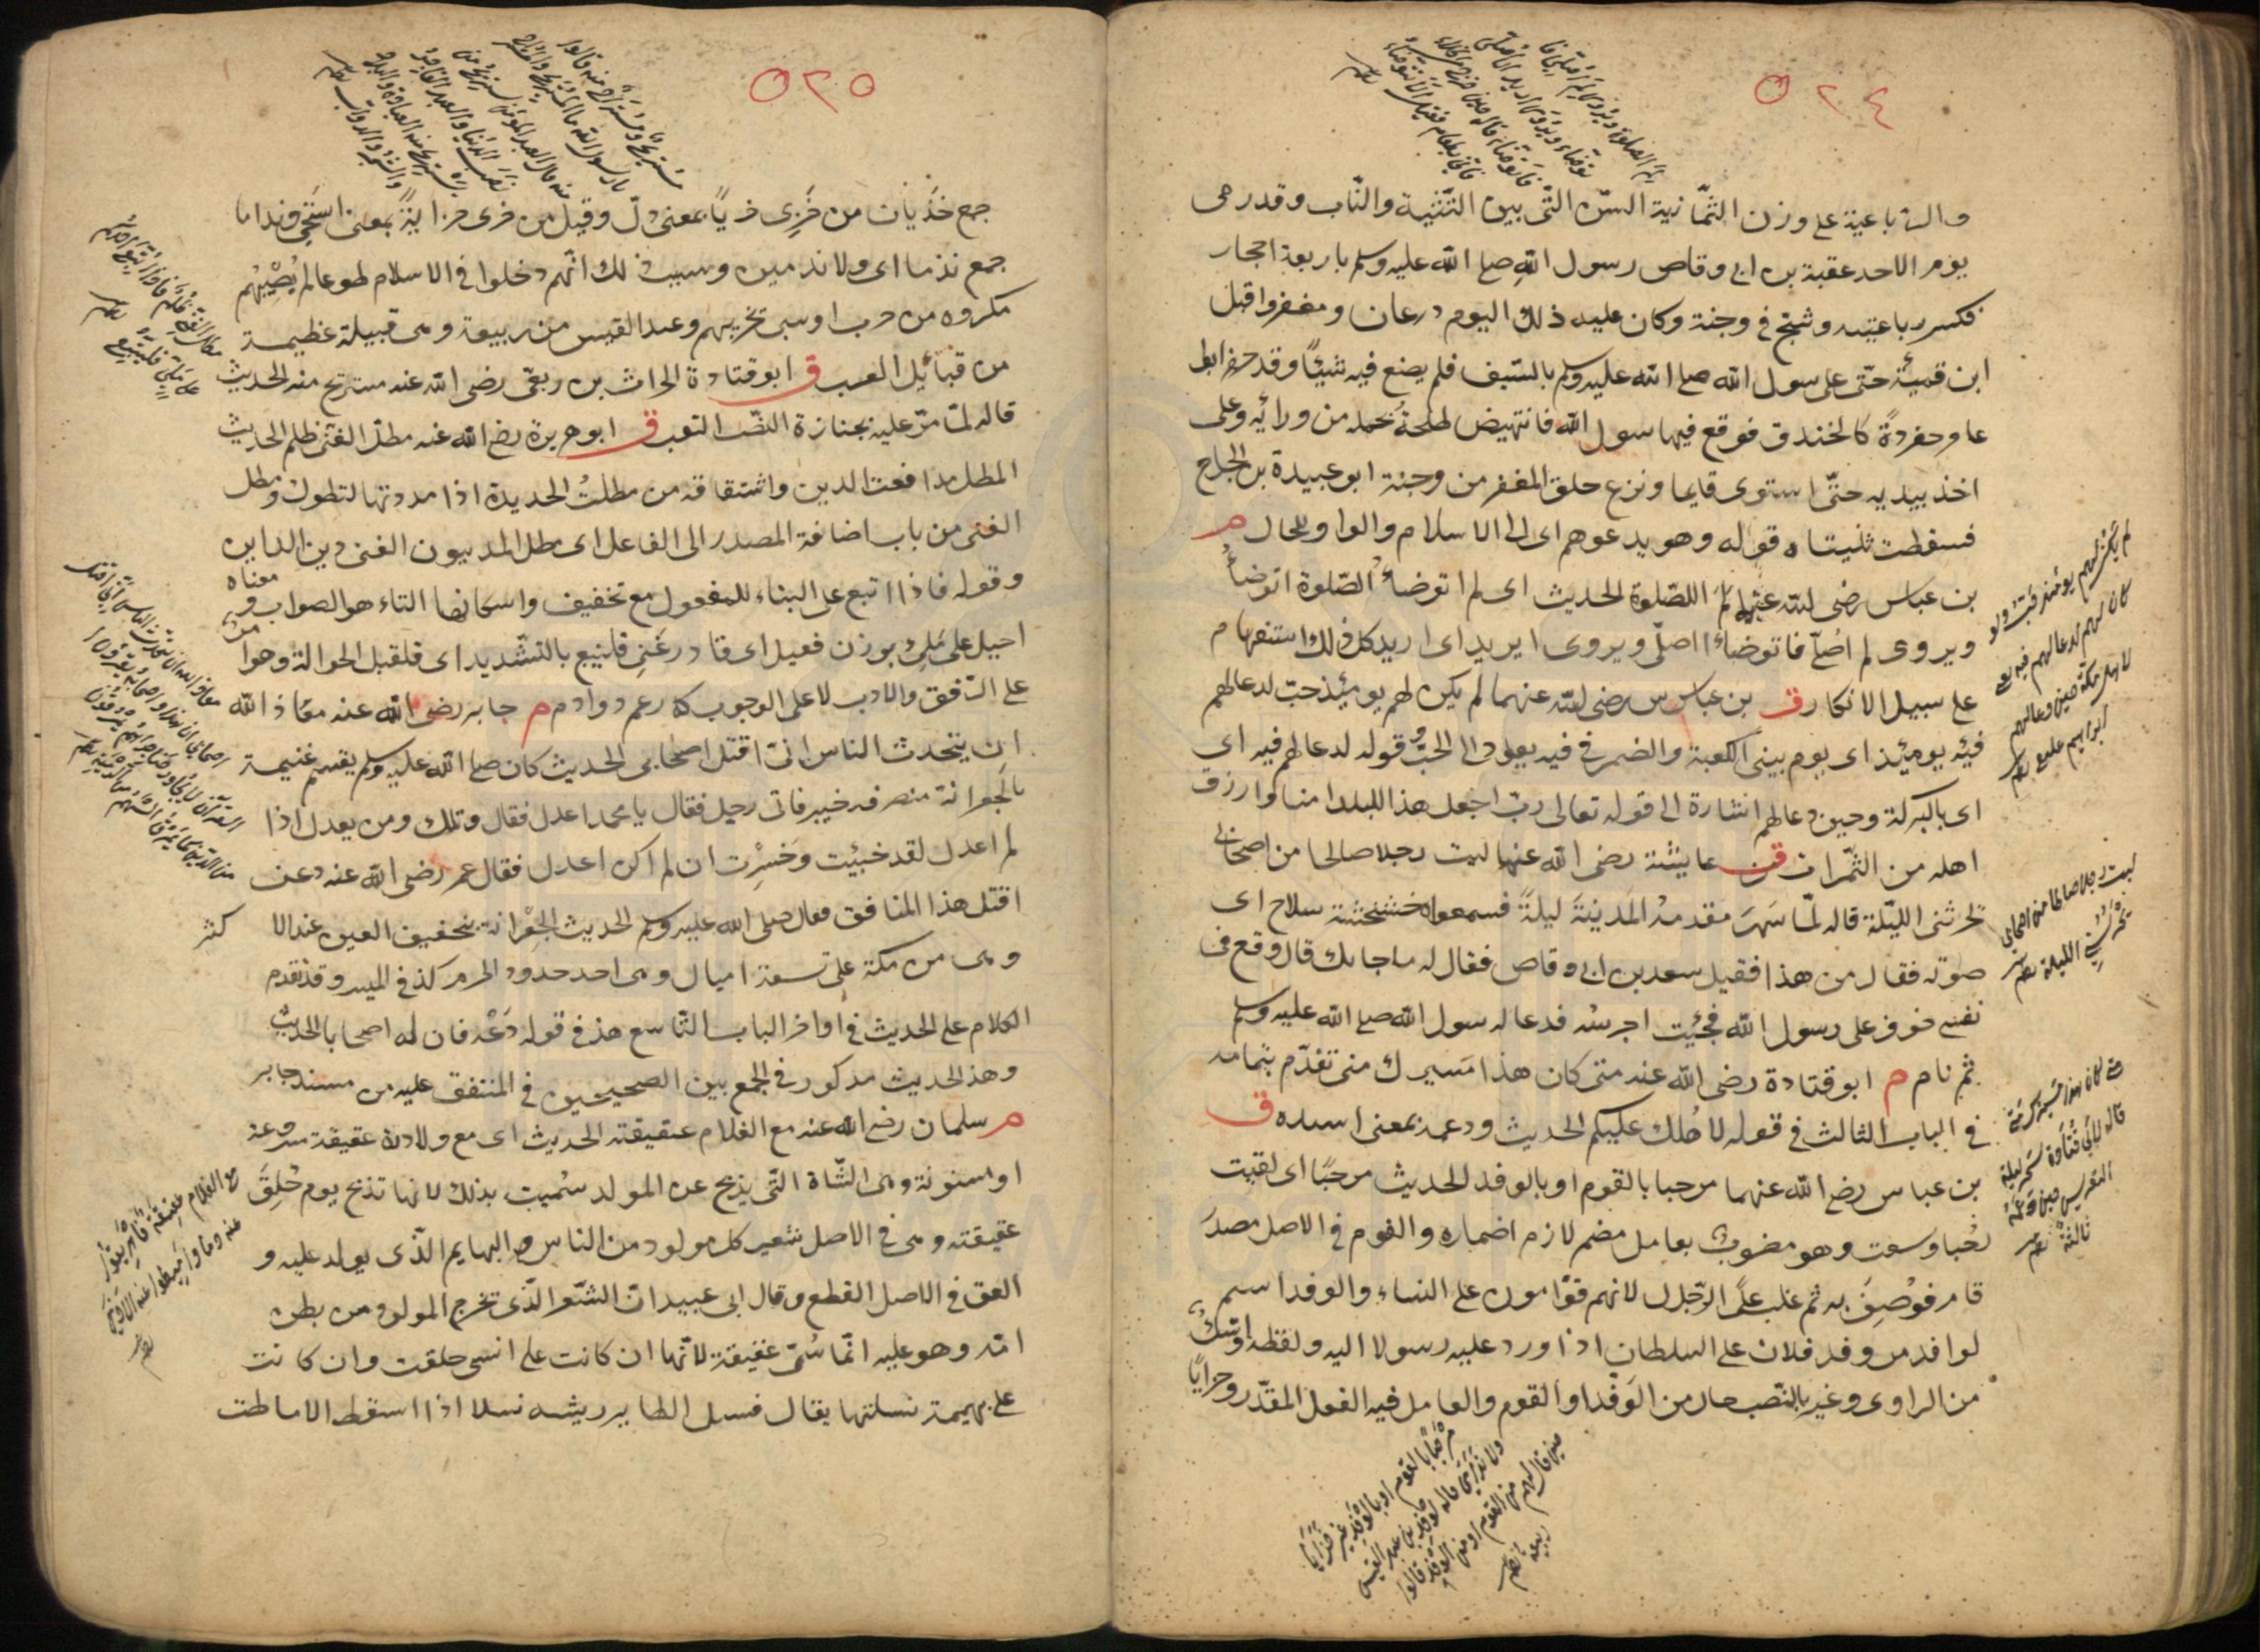 ٥٢٤
والرباعية على وزن الثمانية السن التى بين الثنية والناب وقد رمى
يوم الاحد عقبة بن ابى وقاص رسول الله صلى الله عليه وسلم باربعة احجار
فكسر رباعيته وشج فى وجنة وكان عليه ذلك اليوم درعان ومغفر واقبل
ابن قميئة حتى على رسول الله صلى الله عليه وسلم بالسيف فلم يصنع فيه شيئا وقد حفر ابو
عامر حفرة كالخندق فوقع فيها رسول الله فانتهض طلحة بحمله من ورائه وعلى
اخذ بيديه حتى استوى قايما ونزع حلق المغفر من وجنة ابو عبيدة بن الجراح
فسقطت ثنيتاه قوله وهو يدعوهم اى الى الاسلام والواو للحال م
بن عباس رضى الله عنهما لم الصلوة الحديث اى لم اتوضأ الصلوة اتوضأ
ويروى لم اصل فاتوضأ اصلى ويروى ايريد اى اريد كل ذلك استفهام
على سبيل الانكار ق بن عباس رضى الله عنهما لم يكن لهم يومئذ حب لدعا لهم
فيه يومئذ اى يوم بينى الكعبة والضمر فى فيه يعود الى الحب وقوله لدعا لهم فيه اى
اى بالبركة وحين دعا لهم اشارة الى قوله تعالى رب اجعل هذا البلدا منا وارزق
اهله من الثمرات ق عايشة رضى الله عنها ليت رجلا صالحا من اصحابى
يحرسنى الليلة قاله لما سهر مقدمه المدينة ليلة فسمعوا خشخشة سلاح اى
صوته فقال من هذا فقيل سعد بن ابى وقاص فقال له ما جا بك قال وقع فى
نفسى خوف على رسول الله فجئت احرسه فدعا له رسول الله صلى الله عليه وسلم
ثم نام م ابو قتادة رضى الله عنه متى كان هذا مسيرك منى تقدم بتمامه
فى الباب الثالث فى قوله لا هلك عليكم الحديث ودعمه بمعنى اسنده ق
بن عباس رضى الله عنهما مرحبا بالقوم او بالوفد الحديث مرحبا اى لقيت
رحبا وسعت وهو منصوب بعامل مضمر لازم اضماره والقوم فى الاصل مصدر
قام فوصف به ثم غلب على الرجال لانهم قوامون على النساء والوفد اسم
لوافد من وفد فلان على السلطان اذا ورد عليه رسولا اليه ولفظه او شك
من الراوى وغير بالنصب حال من الوفد او القوم والعامل فيه الفعل المقدر وخزايا
لم يكن لهم يومئذ حب ولو
كان لهم لدعا لهم فيه
لاهل مكة حين دعا لهم
ابراهيم عليه
ليت رجلا صالحا من اصحابى
يحرسنى الليلة
متى كان هذا مسيرك منى
قاله لابى قتادة سحر ليلة
التعريس حين دعمه
ثالثة
مرحبا بالقوم او بالوفد غير خزايا
ولا ندامى قاله لوفد بن عبد القيس
حين قال لهم من القوم او من الوفد قالوا
ربيعة
٥٢٥
مستريح ومستراح منه قالوا
يا رسول الله ما المستريح والمستراح
منه قال العبد المؤمن يستريح من
نصب الدنيا والعبد الفاجر
يستريح منه العباد والبلاد
والشجر والدواب
جمع خزيان من خزى خزيا بمعنى ذل وقيل من خزى خزاية بمعنى استحى وندامى
جمع ندما اى ولا ندمين وسبب ذلك انهم دخلوا فى الاسلام طوعا لم يصبهم
مكروه من حرب او سبى يخزيهم وعبد القيس من ربيعة وهى قبيلة عظيمة
من قبائل العرب ق ابو قتادة الحراث بن ربعى رضى الله عنه مستريح منه الحديث
قاله لما مر عليه بجنازة النصب التعب ق ابو هريرة رضى الله عنه مطل الغنى ظلم الحديث
المطل مدافعت الدين واشتقاقه من مطلت الحديدة اذا مددتها لتطول ومطل
الغنى من باب اضافة المصدر الى الفاعل اى مطل المديون الغنى دين الداين
وقوله فاذا اتبع على البناء للمفعول مع تخفيف واسكان التاء هو الصواب ومعناه
احيل على ملى بوزن فعيل اى قادر غنى فليتبع بالتشديد اى فلقبل الحوالة وهو امر
على الترفق والادب لا على الوجوب كما زعم داود م جابر رضى الله عنه معاذ الله
ان يتحدث الناس انى اقتل اصحابى الحديث كان صلى الله عليه وسلم يقسم غنيمة
بالجعرانة منصرفه خيبر فاتى رجل فقال يا محمد اعدل فقال ويلك ومن يعدل اذا
لم اعدل لقد خبئت وخسرت ان لم اكن اعدل فقال عمر رضى الله عنه دعنى
اقتل هذا المنافق فقال صلى الله عليه وسلم الحديث الجعرانة بتخفيف العين عند الا
كثر
وهى من مكة على تسعة اميال وهى احد حدود الحرم كذ فى الميسر وقد تقدم
الكلام على الحديث فى اواخر الباب التاسع هذ فى قوله دعه فان له اصحابا الحديث
وهذ الحديث مذكور فى الجمع بين الصحيحين فى المتفق عليه من مسند جابر
م سلمان رضى الله عنه مع الغلام عقيقته الحديث اى مع ولادته عقيقة مشروعة
او مسنونة وهى الشاة التى يذبح عن المولد سميت بذلك لانها تذبح يوم حلق
عقيقته وهى فى الاصل شعر كل مولود من الناس والبهايم الذى يولد عليه و
العق فى الاصل القطع وقال ابى عبيد ان الشعر الذى تخرج المولود من بطن
امه وهو عليه انما سمى عقيقة لانها ان كانت على انسى حلقت وان كانت
على بهيمة نسلتها يقال نسل الطاير ريشه نسلا اذا اسقط الاماطت
مطل الغنى ظلم فاذا اتبع احدكم
على ملى فليتبع
معاذ الله ان يتحدث الناس انى اقتل
اصحابى ان هذا واصحابه يقرؤن
القرآن لا يجاوز حناجرهم يمرقون
من الدين كما يمرق السهم من الرمية
مع الغلام عقيقة فاهريقوا
عنه دما واميطوا عنه الاذى